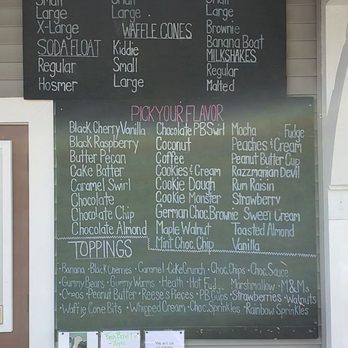 Small Small Small
Large Large Large
X-Large WAFFLE CONES Brownie
SODA FLOAT Kiddie Banana Boat
Regular Small MILKSHAKES
Hosmer Large Regular
Malted
PICK YOUR FLAVOR
Black Cherry Vanilla Chocolate PB Swirl Mocha Fudge
Black Raspberry Coconut Peaches & Cream
Butter Pecan Coffee Peanut Butter Cup
Cake Batter Cookies & Cream Razzmanian Devil
Caramel Swirl Cookie Dough Rum Raisin
Chocolate Cookie Monster Strawberry
Chocolate Chip German Choc. Brownie Sweet Cream
Chocolate Almond Maple Walnut Toasted Almond
Mint Choc. Chip Vanilla
TOPPINGS
Banana • Black Cherries • Caramel • Cake Crunch • Choc. Chips • Choc. Sauce
Gummy Bears • Gummy Worms • Heath • Hot Fud Marshmallow • M&Ms
Oreos • Peanut Butter • Reese's Pieces • PB Cups • Strawberries • Walnuts
Waffle Cone Bits • Whipped Cream • Choc. Sprinkles • Rainbow Sprinkles